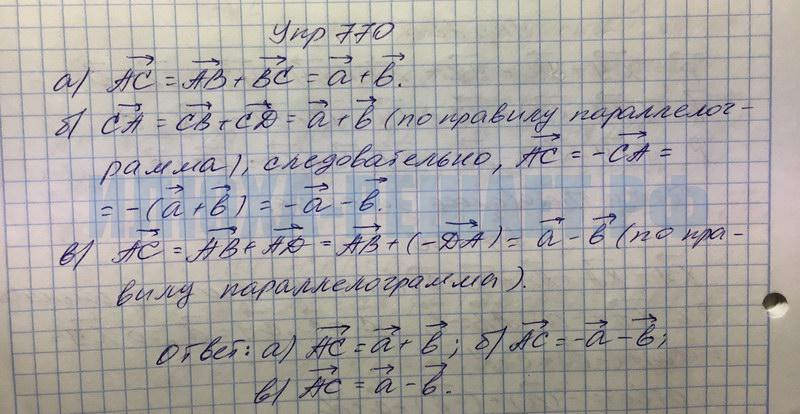 Упр 770
а) AC⃗ = AB⃗ + BC⃗ = a⃗ + b⃗.
б) CA⃗ = CB⃗ + CD⃗ = a⃗ + b⃗ (по правилу параллелог-
рамма), следовательно, AC⃗ = -CA⃗ =
= -(a⃗ + b⃗) = -a⃗ - b⃗.
в) AC⃗ = AB⃗ + AD⃗ = AB⃗ + (-DA⃗) = a⃗ - b⃗ (по пра-
вилу параллелограмма).
Ответ: а) AC⃗ = a⃗ + b⃗; б) AC⃗ = -a⃗ - b⃗;
в) AC⃗ = a⃗ - b⃗.